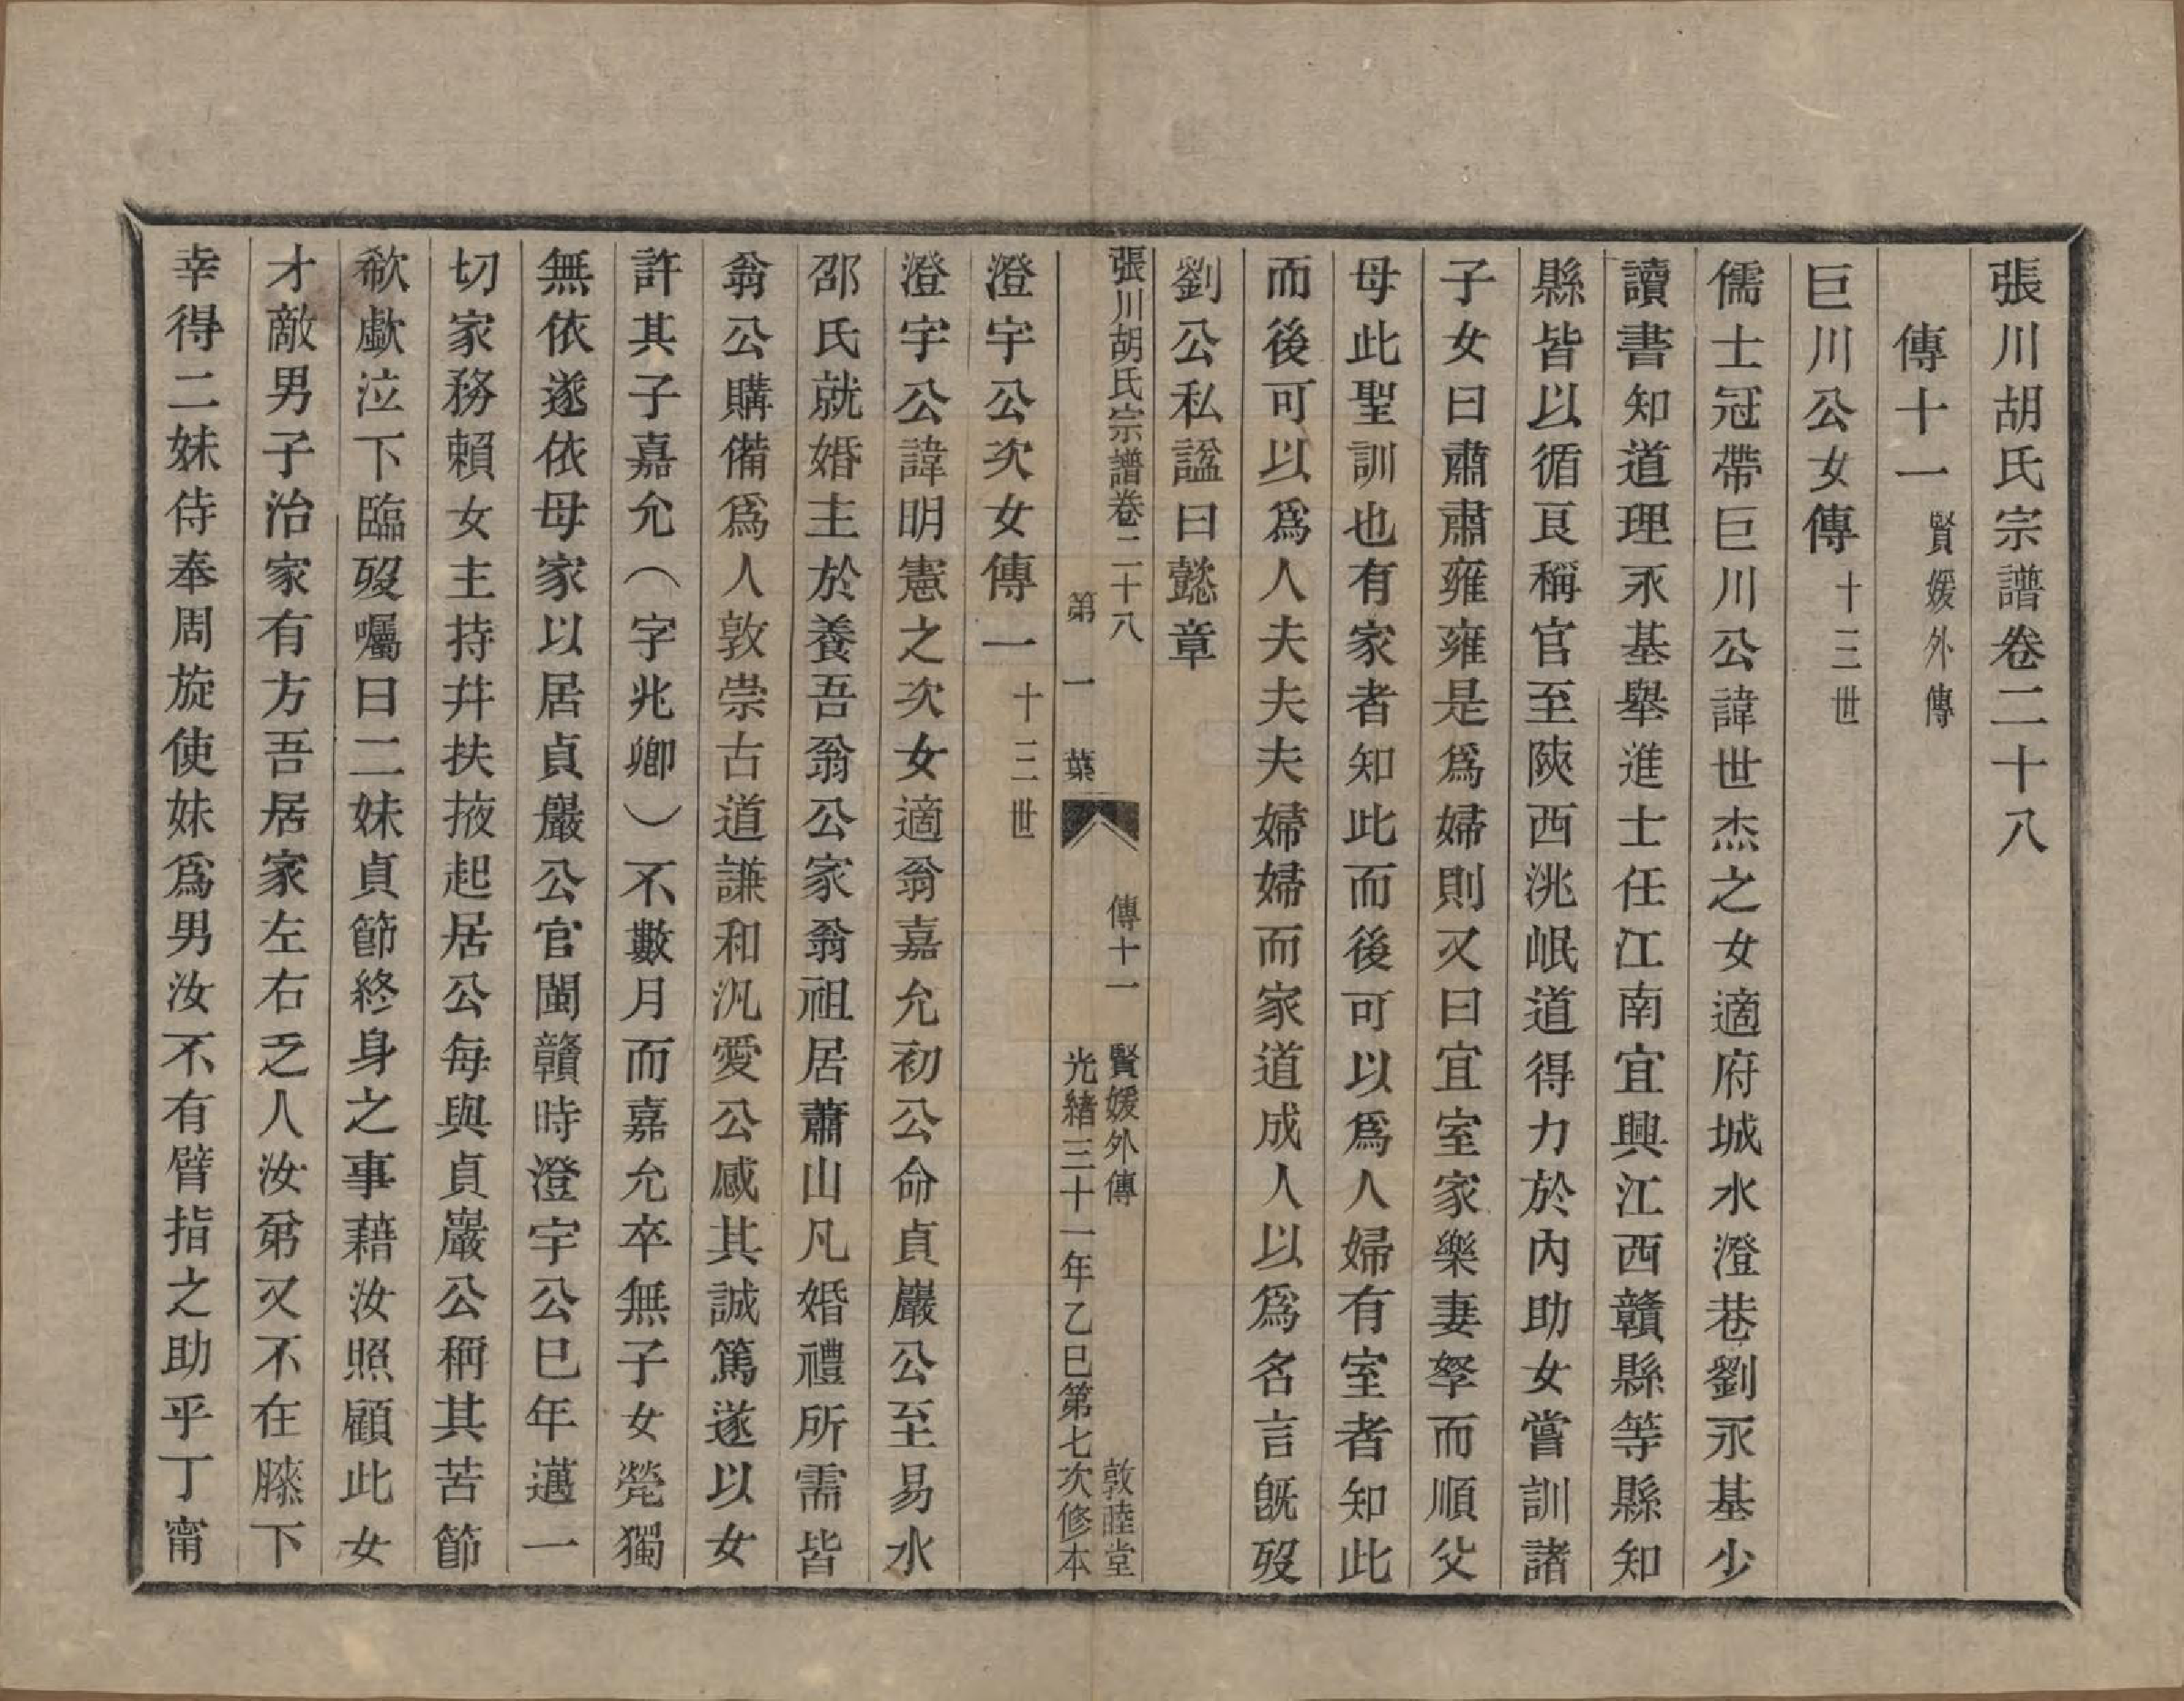 張川胡氏宗譜卷二十八
傳十一賢媛外傳
巨川公女傳十三世
儒士冠帶巨川公諱世杰之女適府城水澄巷劉永基少
讀書知道理永基舉進士任江南宜興江西贛縣等縣知
縣皆以循良稱官至陝西洮岷道得力於內助女嘗訓諸
子女曰肅肅雍雍是爲婦則又曰宜室家樂妻孥而順父
母此聖訓也有家者知此而後可以爲人婦有室者知此
而後可以爲人夫夫夫婦婦而家道成人以爲名言旣歿
劉公私諡曰懿章
張川胡氏宗譜卷二十八 傳十一 賢媛外傳 敦睦堂
第一葉 光緒三十一年乙巳第七次修本
澄宇公次女傳一十三世
澄宇公諱明憲之次女適翁嘉允初公命貞巖公至易水
邵氏就婚主於養吾翁公家翁祖居蕭山凡婚禮所需皆
翁公購備爲人敦崇古道謙和汎愛公感其誠篤遂以女
許其子嘉允（字兆卿）不數月而嘉允卒無子女煢獨
無依遂依母家以居貞巖公官閩贛時澄宇公已年邁一
切家務賴女主持井扶掖起居公每與貞巖公稱其苦節
欷歔泣下臨歿囑曰二妹貞節終身之事藉汝照顧此女
才敵男子治家有方吾居家左右乏人汝弟又不在膝下
幸得二妹侍奉周旋使妹爲男汝不有臂指之助乎丁甯